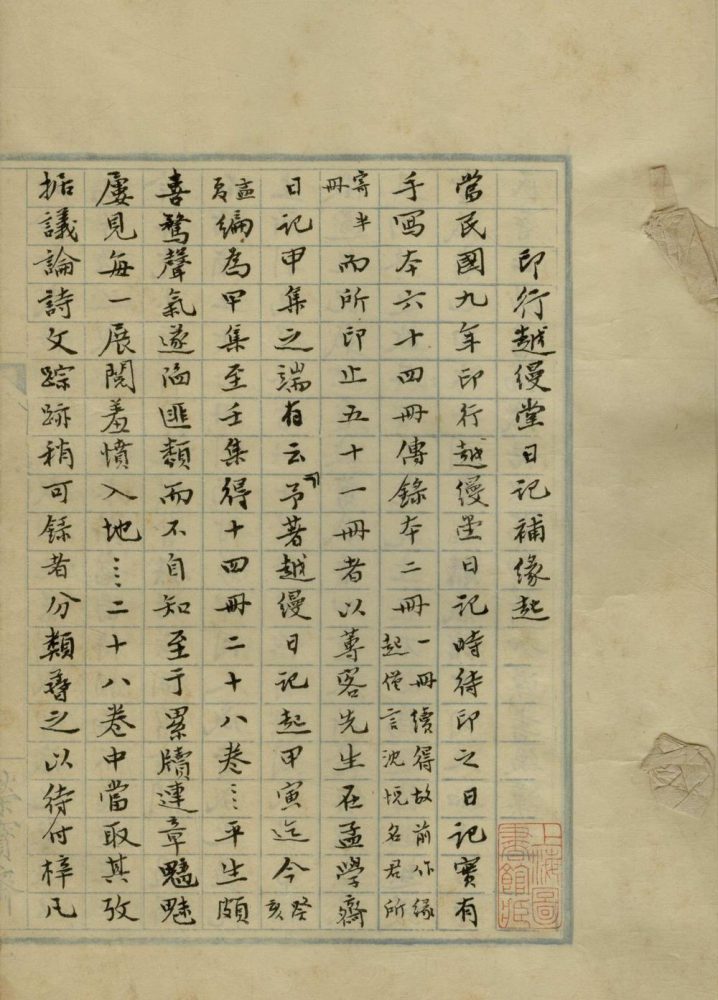 印行越縵堂日記補緣起
當民國九年印行越縵堂日記時待印之日記實有
手寫本六十四冊傳錄本二冊一冊續得故前作緣起僅言沈悅名君所
寄半冊而所印止五十一冊者以蓴客先生在孟學齋
日記甲集之端有云「予著越縵日記起甲寅迄今癸亥
孟夏編為甲集至壬集得十四冊二十八卷⋯平生頗
喜騖聲氣遂陷匪類而不自知至于累牘連章魑魅
屢見每一展閱羞憤入地⋯二十八卷中當取其攷
据議論詩文踪跡稍可錄者分類尋之以待付梓凡
上海圖書館藏